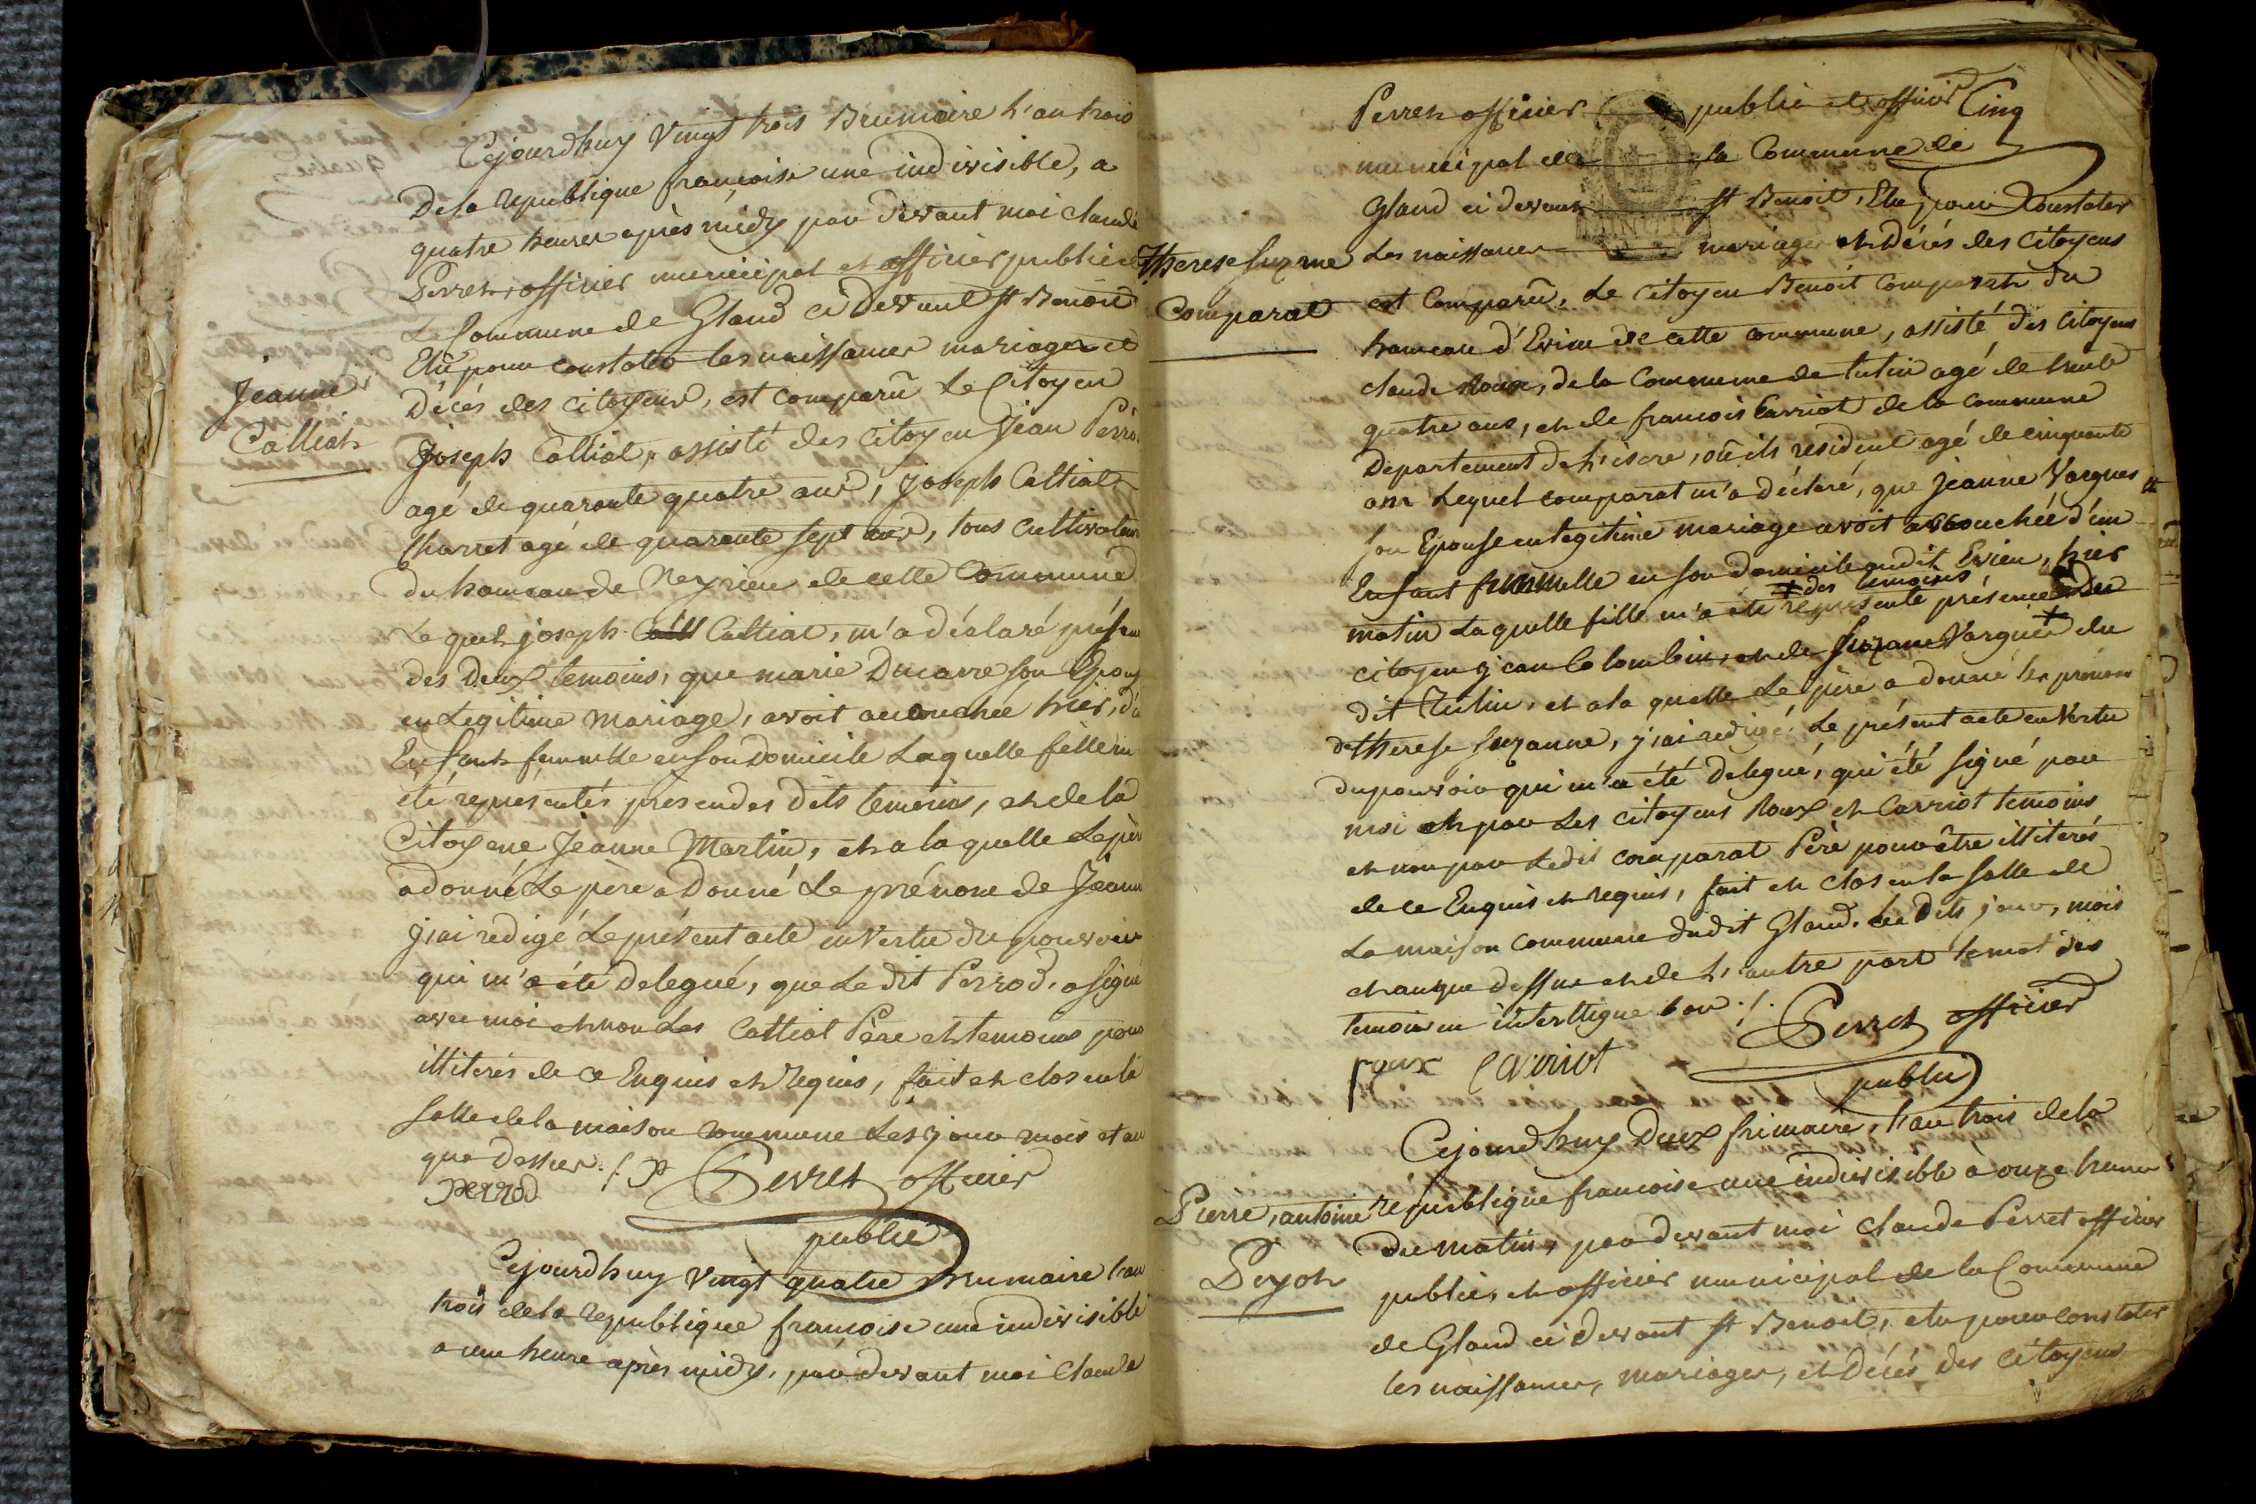 Cejourdhuy vingt trois Brumaire l'an trois
De la republique françoise une indivisible, a
quatre heures après midy par devant moi claude
Perret, officier municipal et officier public de
La Commune de Gland ci devant st Benoit
Elû pour constater les naissances mariages et
Décés des citoyens, est comparû Le Citoyen
Jeanne
Calliat
Joseph Calliat, assisté des citoyen Jean Perrod
agé de quarante quatre ans, joseph Calliat
Charret agé de quarante sept ans, tous cultivateurs
du hameau de Neyrieu de cette Commune
Le quel joseph Calliat, m'a déclaré présence
des Deux temoins, que marie Ducarre son Epouse
en Legitime mariage, avoit accouchée hier, d'un
Enfant femmelle en son Domicile Laquelle fille m'a
été représentés présence des Dits temoins, et de la
Citoyene Jeanne Martin, et a la quelle Le père
a donné Le père a Donné Le prénom de Jeanne
j'ai redigé Le présent acte en vertu du pouvoir
qui m'a été delegué, que Le dit Perrod, a signé
avec moi et non Les Calliat Père et temoins pour
illiterés de ce Enquis et requis, fait et clos en la
salle de la maison commune Les jour mois et an
que dessus ./. P Perret officier
perrod
public
Cejourdhuy vingt quatre Brumaire l'an
trois de la republique françoise une indivisible
a une heure après midy, par devant moi Claude
Perret officier public et officier Cinq
municipal de la Commune de
Gland ci devant st Benoit, Elu pour Constater
Therese Suzanne
Comparat
Les naissances mariages et Décés des Citoyens
est Comparû, Le Citoyen Benoit Comparat du
hameau d'Evieu de cette commune, assisté des Citoyens
claude Roux, de la Commune de tulin agé de trente
quatre ans, et de françois Carriot de la commune
Departement de l'isere, où ils resident agé de cinquante
ans Lequel comparat m'a déclaré, que Jeanne Vargues
son Epouse en Legitime mariage avoit accouchée d'un
Enfant femmelle en son domicile audit Evieu, hier
+ des temoins
matin Laquelle fille m'a été représenté présence + Du
citoyen jean Colombin, et de Suzane Vargues du
dit Tulin, et a la quelle Le père a donné les prénoms
de therese Suzanne, j'ai redigé Le présent acte en Vertu
du pouvoir qui m'a été delegué, qui été signé par
moi et par Les citoyens Roux et Carriot temoins
et non par Ledit comparat Père pour être illiterés
de ce Enquis et requis, fait et clos en la salle de
La maison commune du dit Gland. Les Dits jour, mois
et an que dessus et de L'autre part le mot des
temoins en interligne bon ./. Perret officier
roux Carriot
public
Cejourdhuy Deux frimaire, l'an trois de la
Pierre, antoine
Peyot
republique francoise une indivisible à onze heures
du matin, par devant moi claude Perret officier
public, et officier municipal de la Commune
de Gland ci Devant st Benoit, elu pour constater
les naissances, mariages, et Décés des citoyens